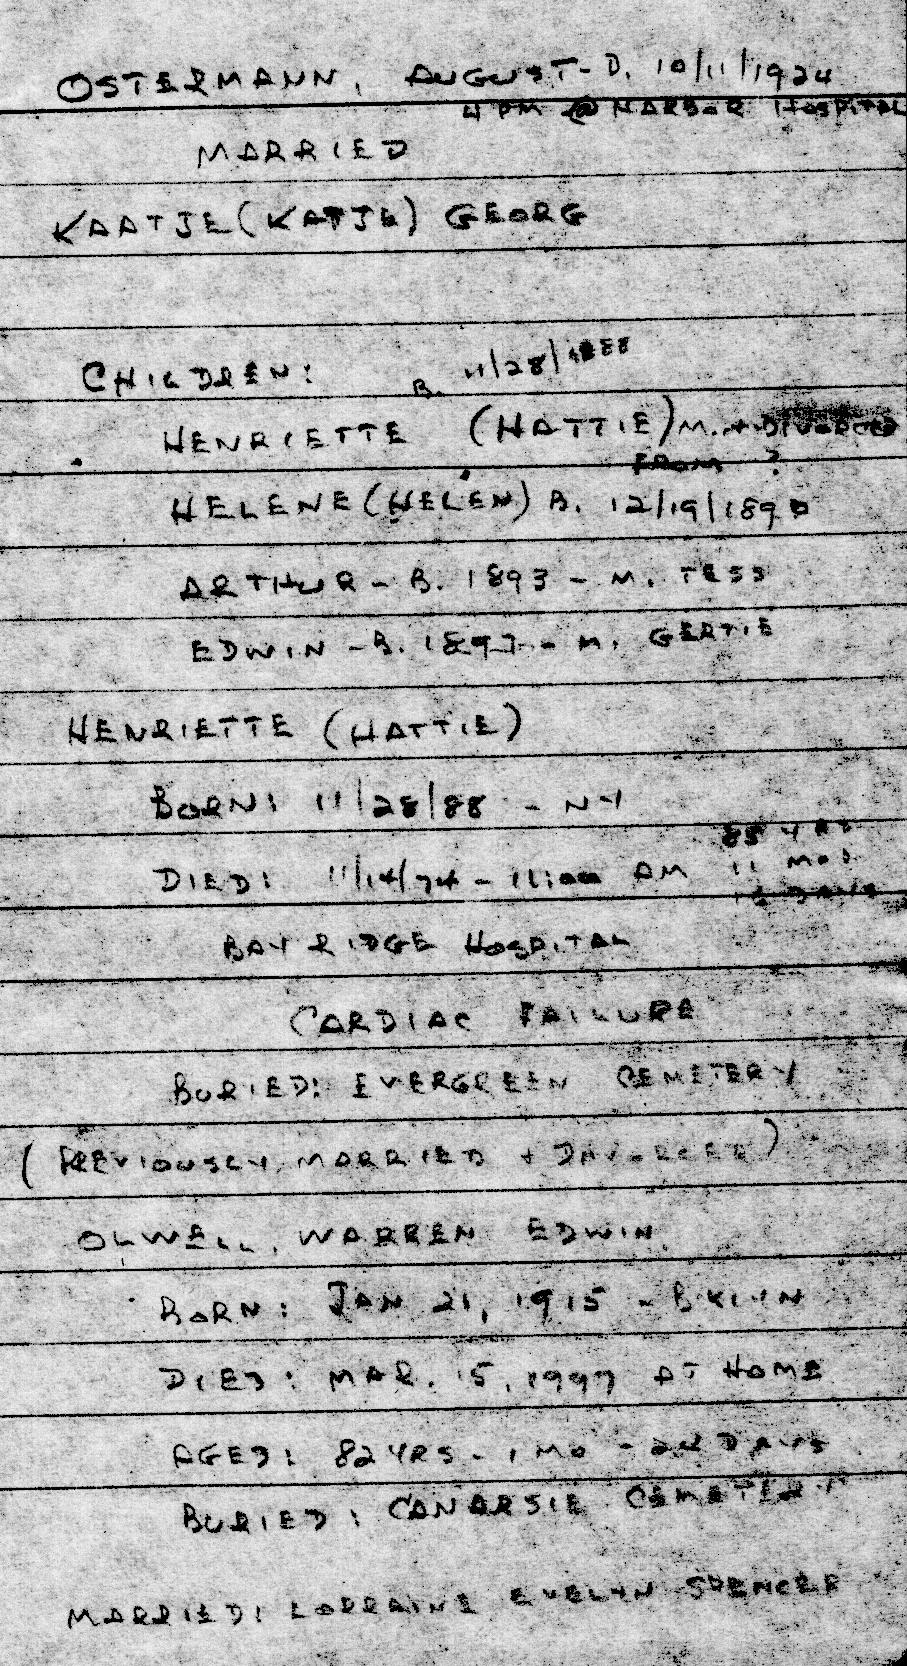 OSTERMANN, AUGUST - D. 10/11/1924
4 PM @ HARBOR HOSPITAL
MARRIED
KAATJE (KATJE) GEORG
CHILDREN: B. 11/28/1888
HENRIETTE (HATTIE) M. + DIVORCED
FROM ?
HELENE (HELEN) B. 12/19/1890
ARTHUR - B. 1893 - M. TESS
EDWIN - B. 1897 - M. GERTIE
HENRIETTE (HATTIE)
BORN: 11/28/88 - NY
85 YRS
DIED: 11/14/74 - 11:00 AM 11 MOS
16 DAYS
BAY RIDGE HOSPITAL
CARDIAC FAILURE
BURIED: EVERGREEN CEMETERY
(PREVIOUSLY MARRIED + DIVORCED)
OLWELL, WARREN EDWIN
BORN: JAN 21, 1915 - BKLYN
DIED: MAR. 15, 1997 AT HOME
AGED: 82 YRS - 1 MO - 22 DAYS
BURIED: CANARSIE CEMETERY
MARRIED: LORRAINE EVELYN SPENCER